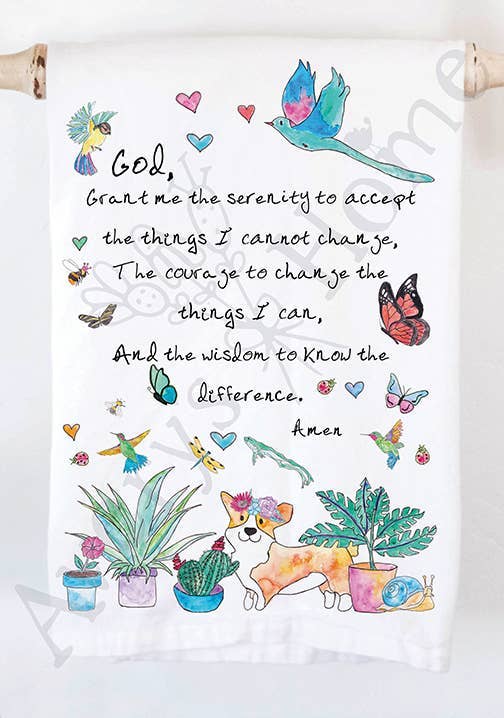 God,
Grant me the serenity to accept
the things I cannot change,
The courage to change the
things I can,
And the wisdom to know the
difference.
Amen
Home